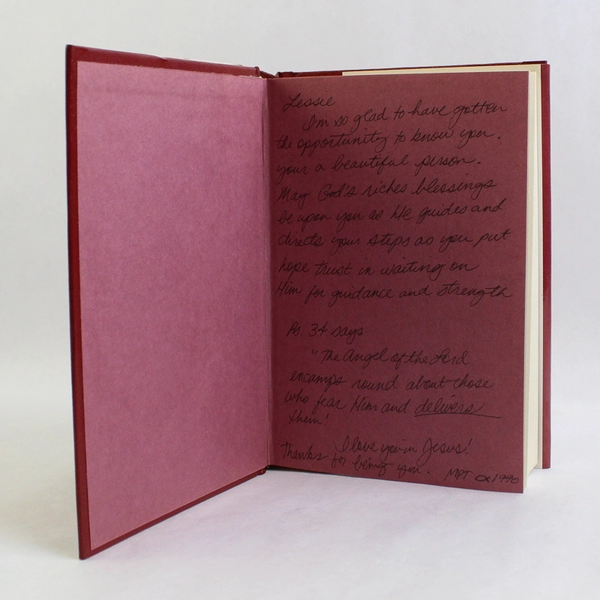 Lessie
I'm so glad to have gotten
the opportunity to know you.
your a beautiful person.
May God's riches blessings
be upon you as He guides and
directs your steps as you put
hope trust in waiting on
Him for guidance and strength
Ps. 34 says
"The Angel of the Lord
encamps round about those
who fear Him and delivers
them!
I love you in Jesus!
Thanks for being you.
MPT 1990